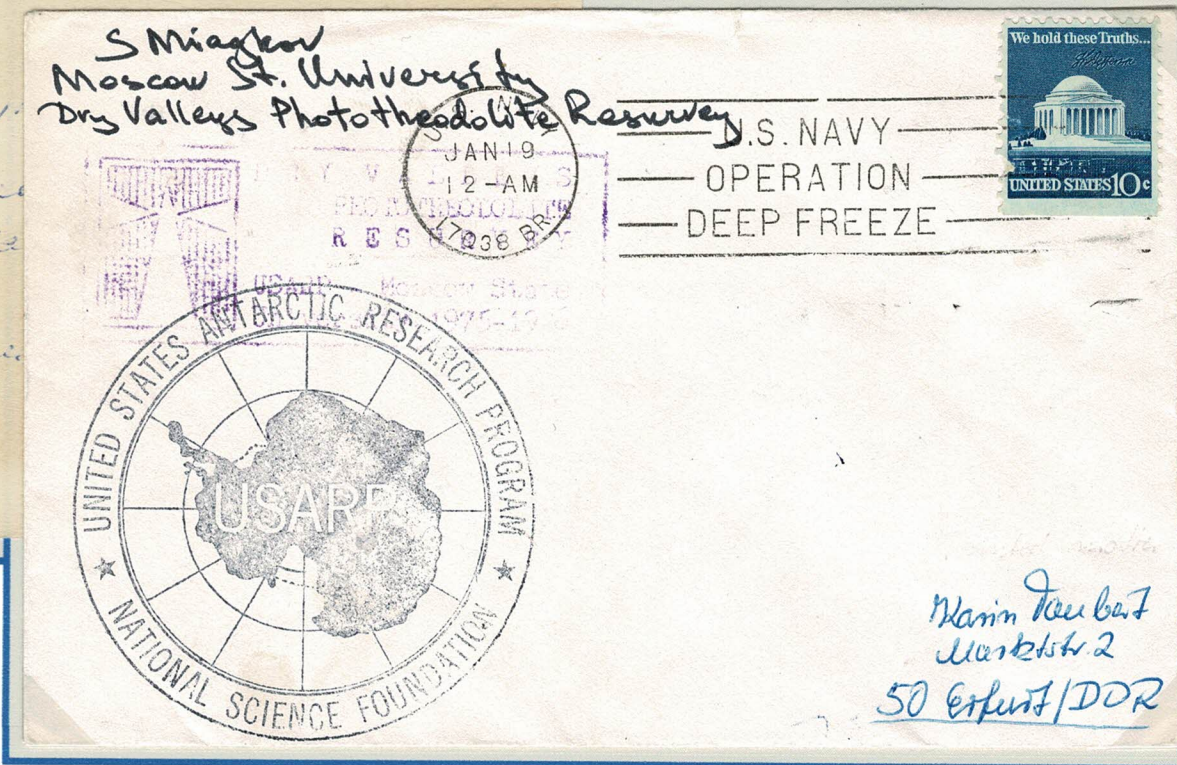 S Miagkov
Moscow St. University
Dry Valleys Phototheodolite Resurvey
JAN 19
12-AM
17038 BR
U.S. NAVY
OPERATION
DEEP FREEZE
We hold these Truths...
UNITED STATES 10c
RESURVEY
USARP - Moscow State
1975-19
UNITED STATES ANTARCTIC RESEARCH PROGRAM
USARP
NATIONAL SCIENCE FOUNDATION
Karin Taubert
Marktstr. 2
50 Erfurt/DDR